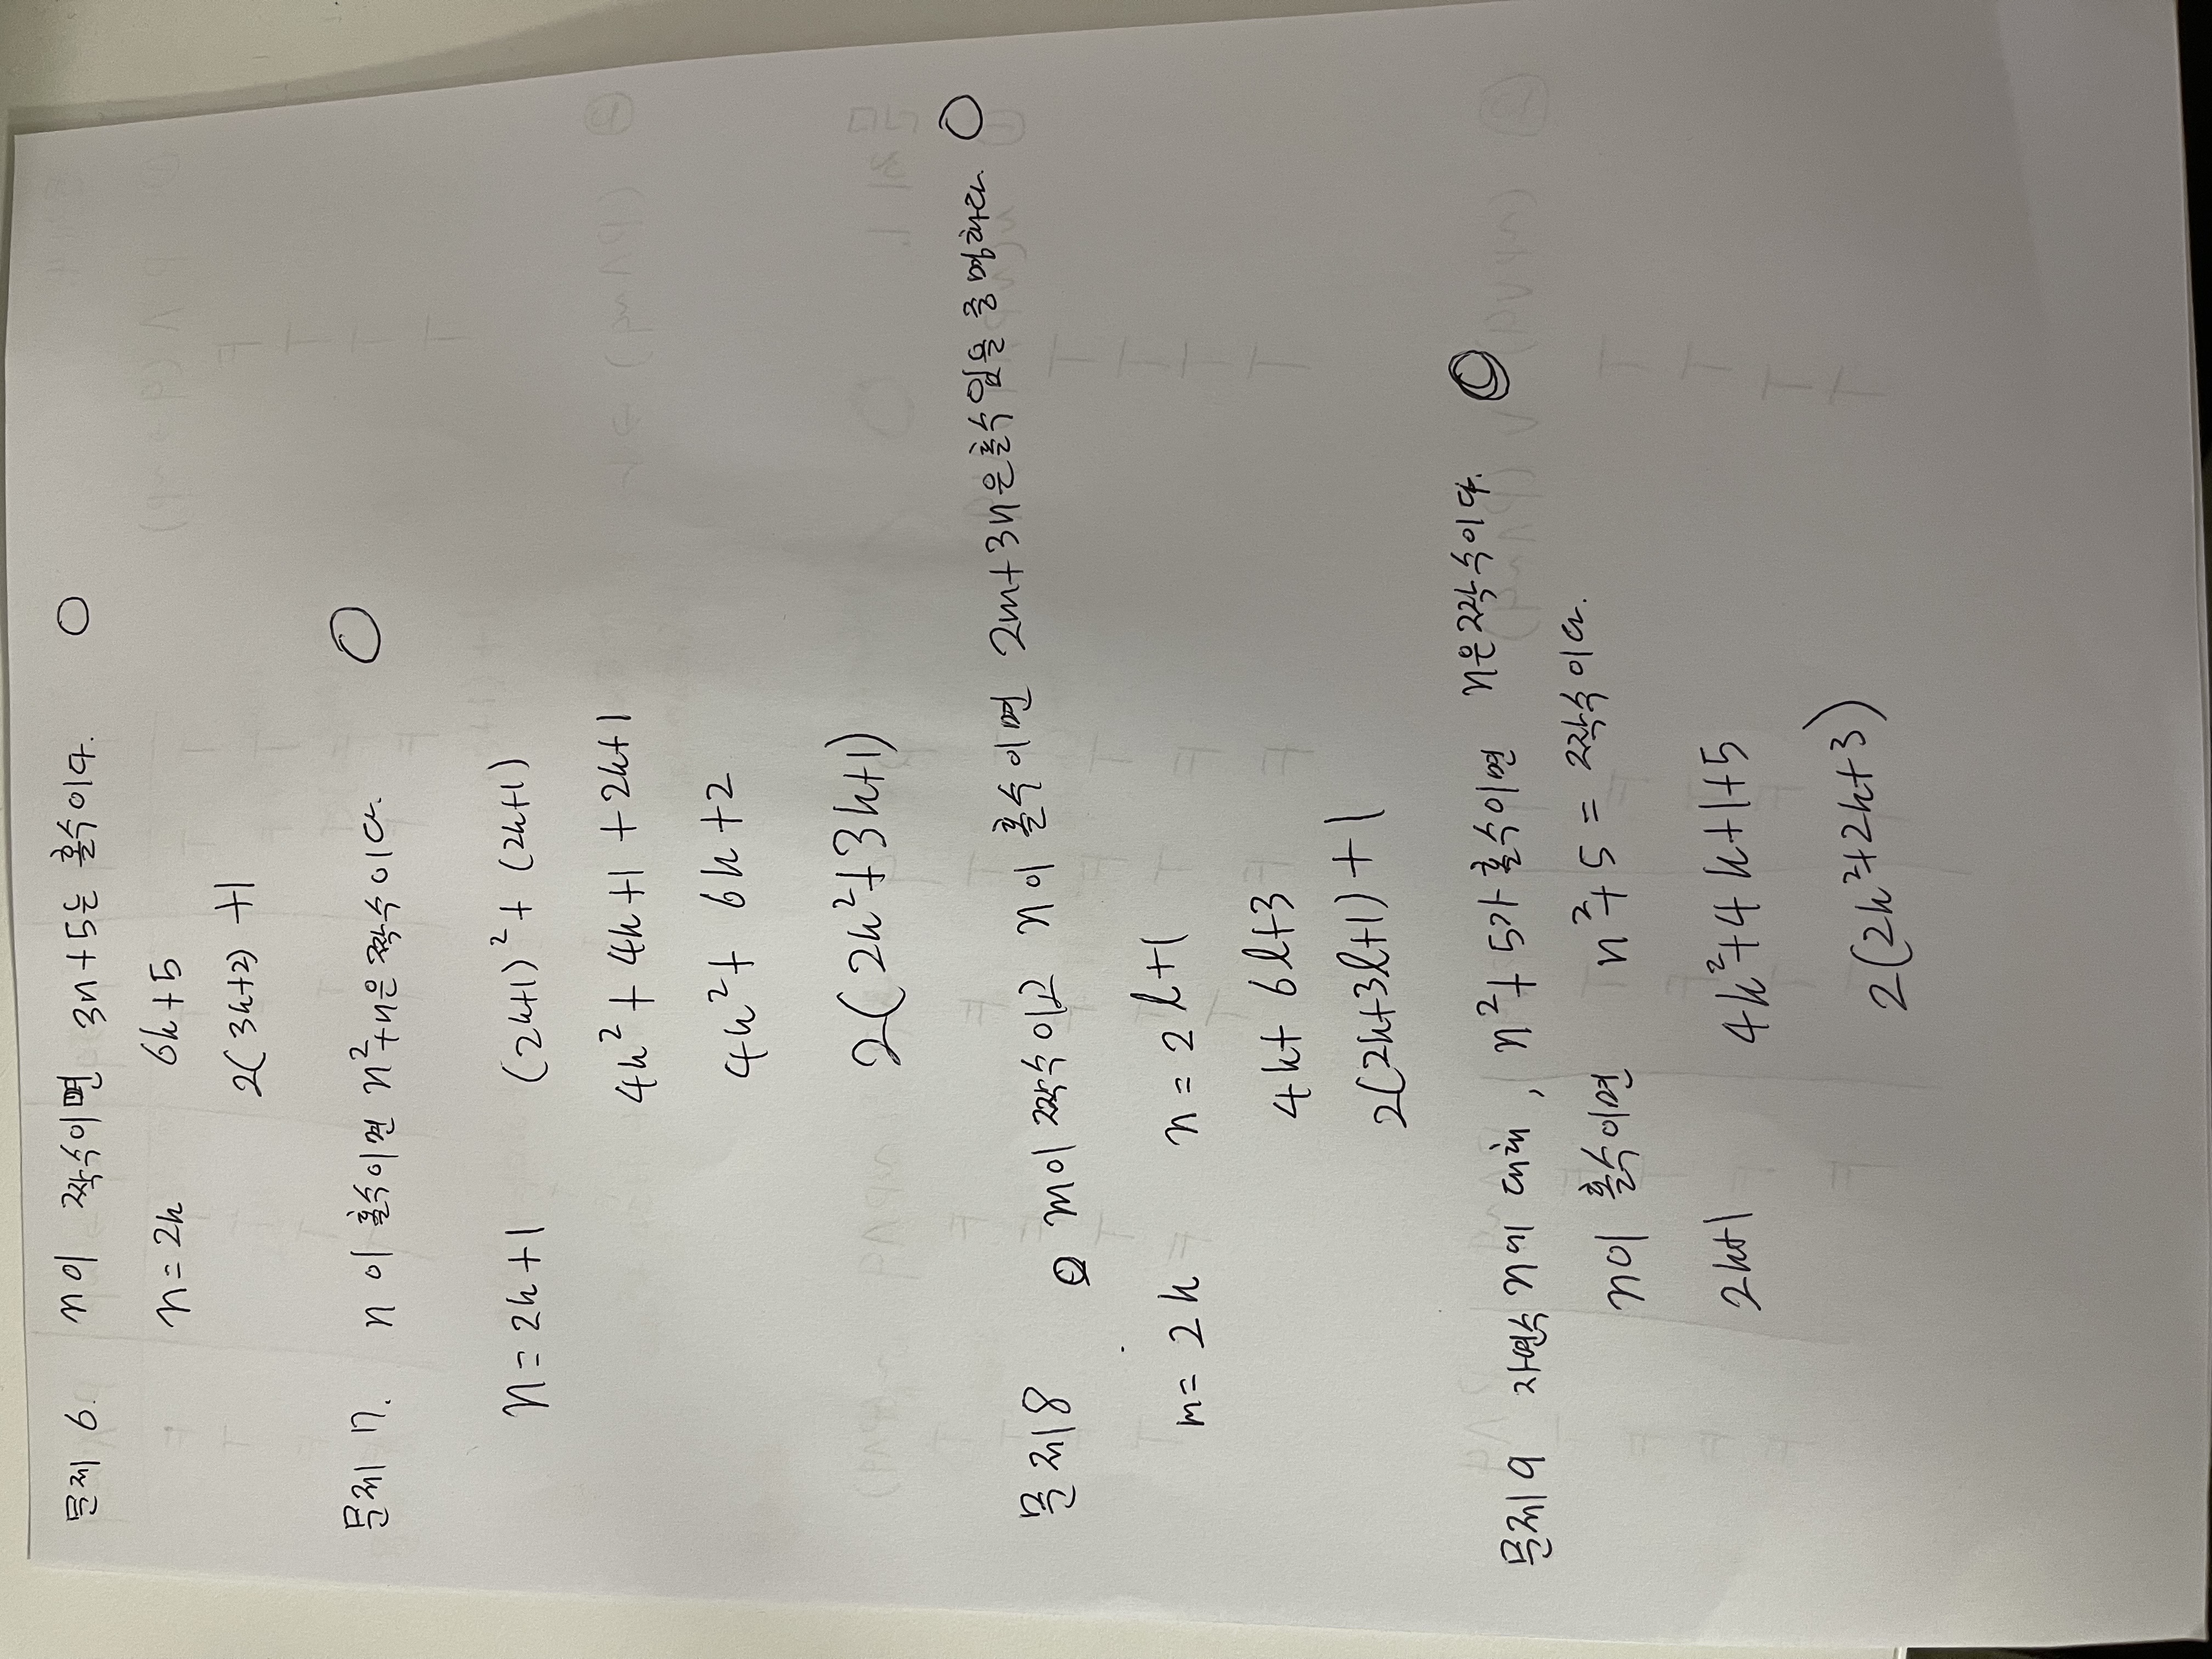 문제 6. n이 짝수이면 3n+5는 홀수이다. ○
n=2k 6k+5
2(3k+2) +1
문제 7. n이 홀수이면 n²+n은 짝수이다. ○
n=2k+1 (2k+1)²+(2k+1)
4k²+4k+1+2k+1
4k²+6k+2
2(2k²+3k+1)
문제8 m이 짝수이고 n이 홀수이면 2m+3n은 홀수임을 증명하라. ○
m=2k n=2l+1
4k+6l+3
2(2k+3l+1)+1
문제9 자연수 n에 대해, n²+5가 홀수이면 n은 짝수이다. ○
n이 홀수이면 n²+5=짝수이다.
2k+1 4k²+4k+1+5
2(2k²+2k+3)